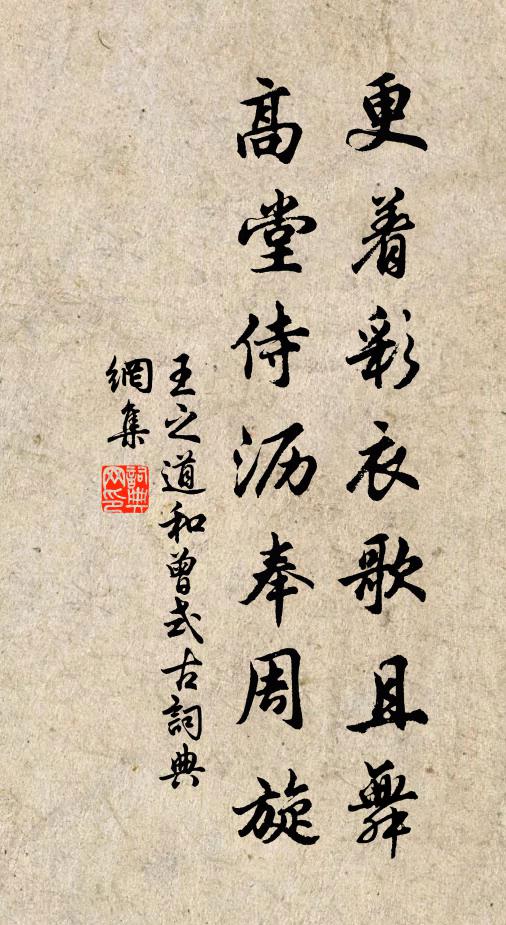 更着彩衣歌且舞
髙堂侍沥奉周旋
王之道和曾式古詞典
網集
詞典
网印